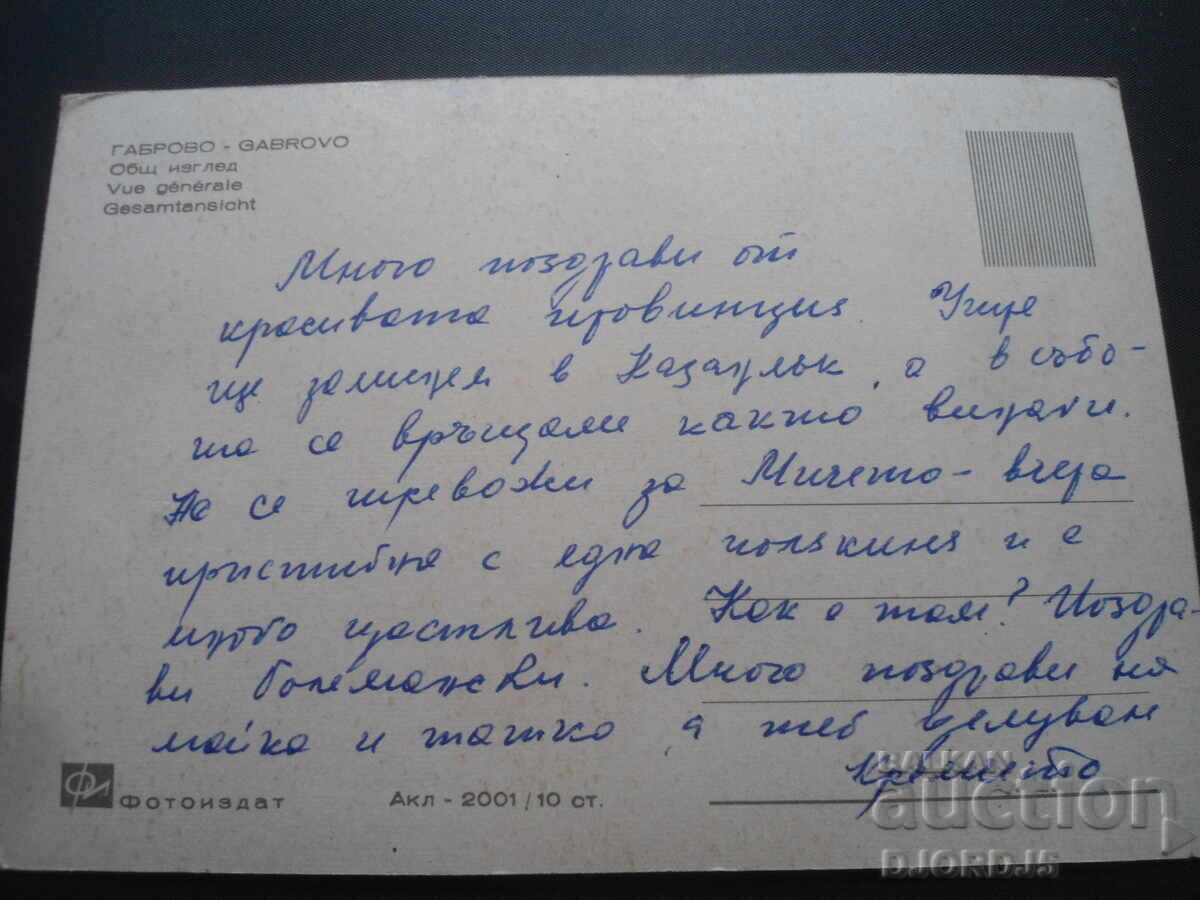 ГАБРОВО - GABROVO
Общ изглед
Vue générale
Gesamtansicht
Много поздрави от
красивата провинция. Утре
ще заминем в Казанлък, а в събо-
та се връщаме както винаги.
Не се тревожи за Мичето - вчера
пристигна с една полякиня и е
много щастлива. Как е там? Поздра-
ви Големански. Много поздрави на
майка и татко, а теб целувам
ФОТОИЗДАТ
Акл - 2001/10 ст.
BALKAN
auction
DJORDJ5